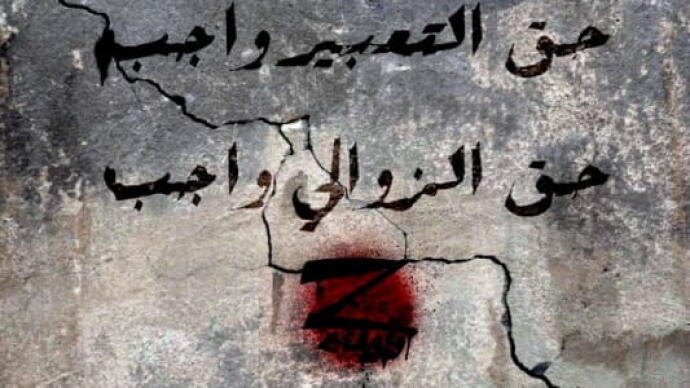 حق التعبير واجب
حق الزوالي واجب
Z